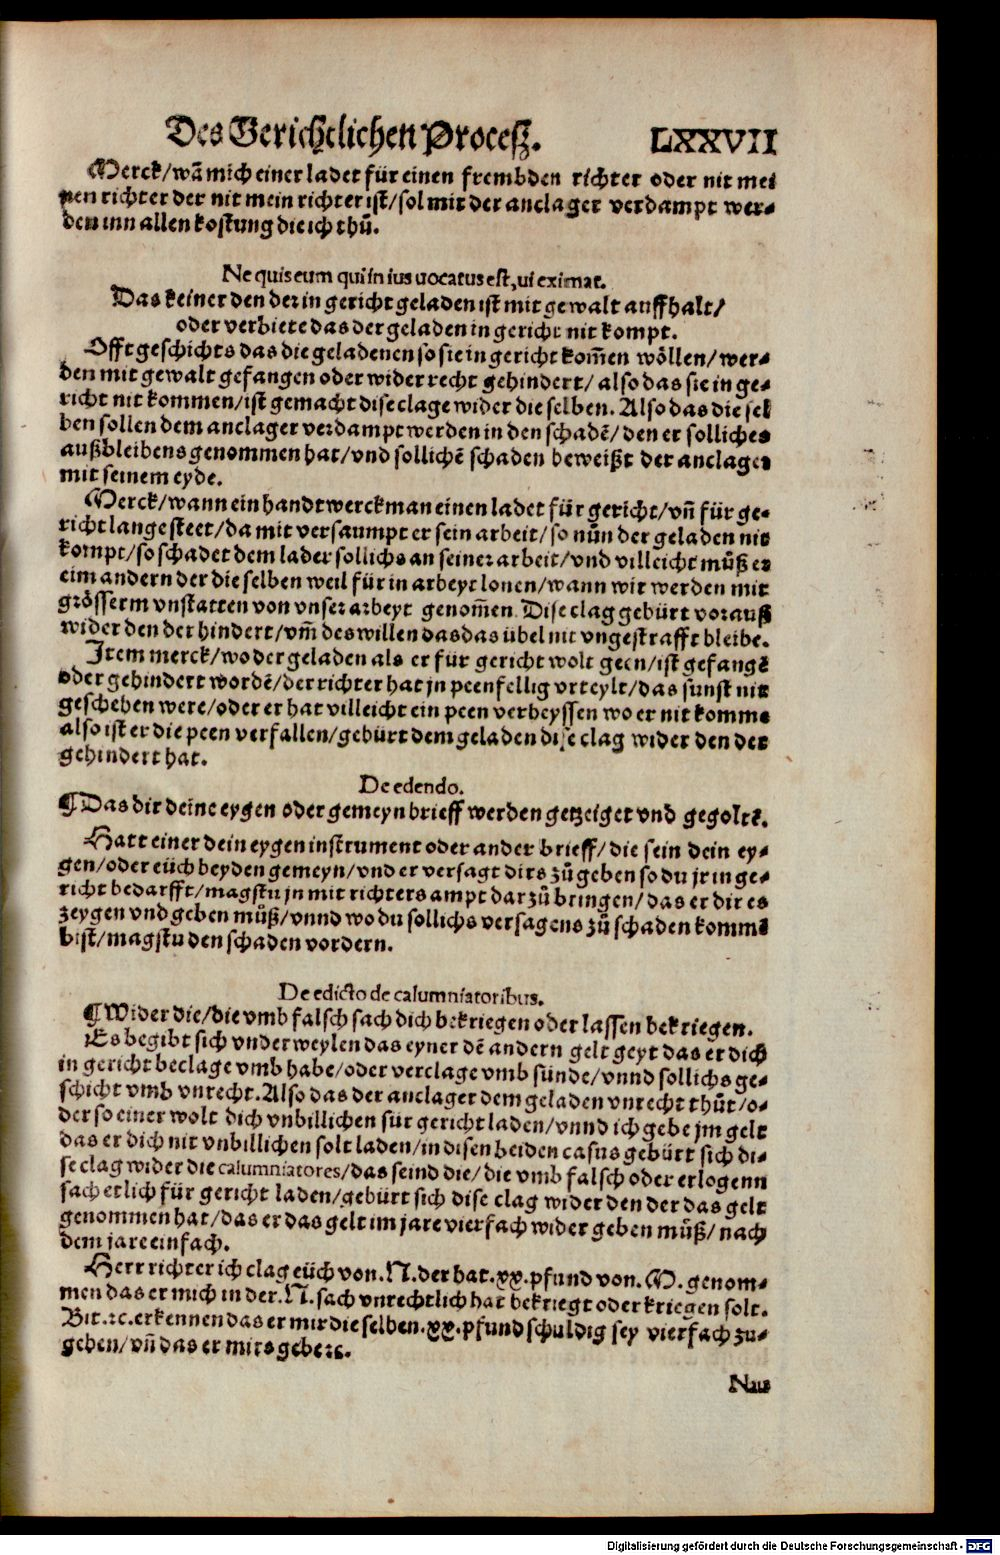 Des Gerichtlichen Proceß. LXXVII
Merck/wañ mich einer ladet für einen frembden richter oder nit mei
nen richter der nit mein richter ist/sol mir der anclager verdampt wer-
den inn allen kostung die ich thů.
Ne quis eum qui in ius uocatus est, ui eximat.
Das keiner den der in gericht geladen ist mit gewalt auffhalt/
oder verbiete das der geladen in gericht nit kompt.
Offt geschichts das die geladenen so sie in gericht kom̃en wöllen/wer-
den mit gewalt gefangen oder wider recht gehindert/ also das sie in ge-
richt nit kommen/ist gemacht dise clage wider die selben. Also das die sel
ben sollen dem anclager verdampt werden in den schadē/den er solliches
außbleibens genommen hat/vnd sollichē schaden beweißt der anclager
mit seinem eyde.
Merck/wann ein handtwerckman einen ladet für gericht/vñ für ge-
richt lange steet/da mit versaumpt er sein arbeit/so nůn der geladen nit
kompt/so schadet dem lader sollichs an seiner arbeit/vnd villeicht můß er
eim andern der die selben weil für in arbeyt lonen/wann wir werden mit
grösserm vnstatten von vnser arbeyt genom̃en. Dise clag gebürt vorauß
wider den der hindert/vm̃ des willen das das übel nit vngestrafft bleibe.
Item merck/wo der geladen als er für gericht wolt geen/ist gefangē
oder gehindert wordē/der richter hat jn peenfellig vrteylt/das sunst nit
geschehen were/oder er hat villeicht ein peen verheyssen wo er nit komme
also ist er die peen verfallen/gebürt dem geladen dise clag wider den der
gehindert hat.
De edendo.
¶Das dir deine eygen oder gemeyn brieff werden getzeiget vnd gegoltē.
Hatt einer dein eygen instrument oder ander brieff/die sein dein ey-
gen/oder eüch beyden gemeyn/vnd er versagt dirs zů geben so du jr in ge-
richt bedarfft/magstu jn mit richters ampt dar zů bringen/das er dir es
zeygen vnd geben můß/vnnd wo du sollichs versagens zů schaden komme
bist/magstu den schaden vordern.
De edicto de calumniatoribus.
¶Wider die/die vmb falsch sach dich bekriegen oder lassen bekriegen.
Es begibt sich vnderweylen das eyner dē andern gelt geyt das er dich
in gericht beclage vmb habe/oder verclage vmb sünde/vnnd sollichs ge-
schicht vmb vnrecht. Also das der anclager dem geladen vnrecht thůt/o-
der so einer wolt dich vnbillichen für gericht laden/vnnd ich gebe jm gelt
das er dich nit vnbillichen solt laden/in disen beiden casus gebürt sich di-
se clag wider die calumniatores/das seind die/die vmb falsch oder erlogenn
sach etlich für gericht laden/gebürt sich dise clag wider den der das gelt
genommen hat/das er das gelt im jare vierfach wider geben můß/nach
dem jare einfach.
Herr richter ich clag eüch von .N. der hat .xx. pfund von .M. genom-
men das er mich in der .N. sach vnrechtlich hat bekriegt oder kriegen solt.
Bit. ꝛc. erkennen das er mir die selben .xx. pfund schuldig sey vierfach zu-
geben/vñ das er mirs gebe ꝛc.
Nau
Digitalisierung gefördert durch die Deutsche Forschungsgemeinschaft - DFG